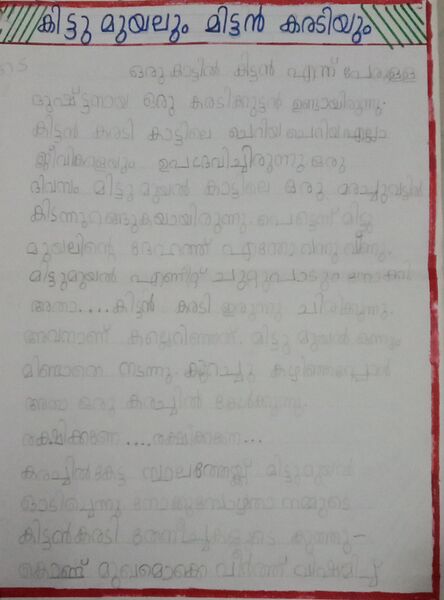 കിട്ടു മുയലും മിട്ടൻ കരടിയും
ഒരു കാട്ടിൽ കിട്ടൻ എന്ന് പേരുള്ള
ദുഷ്ട്ടനായ ഒരു കരടിക്കുട്ടൻ ഉണ്ടായിരുന്നു.
കിട്ടൻ കരടി കാട്ടിലെ ചെറിയ ചെറിയ എല്ലാ
ജീവികളെയും ഉപദ്രവിച്ചിരുന്നു ഒരു
ദിവസം മിട്ടു മുയൽ കാട്ടിലെ ഒരു മരച്ചുവട്ടിൽ
കിടന്നുറങ്ങുകയായിരുന്നു. പെട്ടെന്ന് മിട്ടു
മുയലിന്റെ ദേഹത്ത് എന്തോ വന്നു വീണു.
മിട്ടുമുയൽ എണീറ്റ് ചുറ്റുപാടും നോക്കി
അതാ....കിട്ടൻ കരടി ഇരുന്നു ചിരിക്കുന്നു.
അവനാണ് കല്ലെറിഞ്ഞത്. മിട്ടു മുയൽ ഒന്നും
മിണ്ടാതെ നടന്നു. കുറച്ചു കഴിഞ്ഞപ്പോൾ
അതാ ഒരു കരച്ചിൽ കേൾക്കുന്നു.
രക്ഷിക്കണേ....രക്ഷിക്കണേ...
കരച്ചിൽകേട്ട സ്ഥലത്തേയ്ക്ക് മിട്ടുമുയൽ
ഓടിച്ചെന്നു നോക്കുമ്പോഴതാ നമ്മുടെ
കിട്ടൻകരടി തേനീച്ചകളുടെ കുത്തു-
കൊണ്ട് മുഖമൊക്കെ വീർത്ത് വിഷമിച്ച്